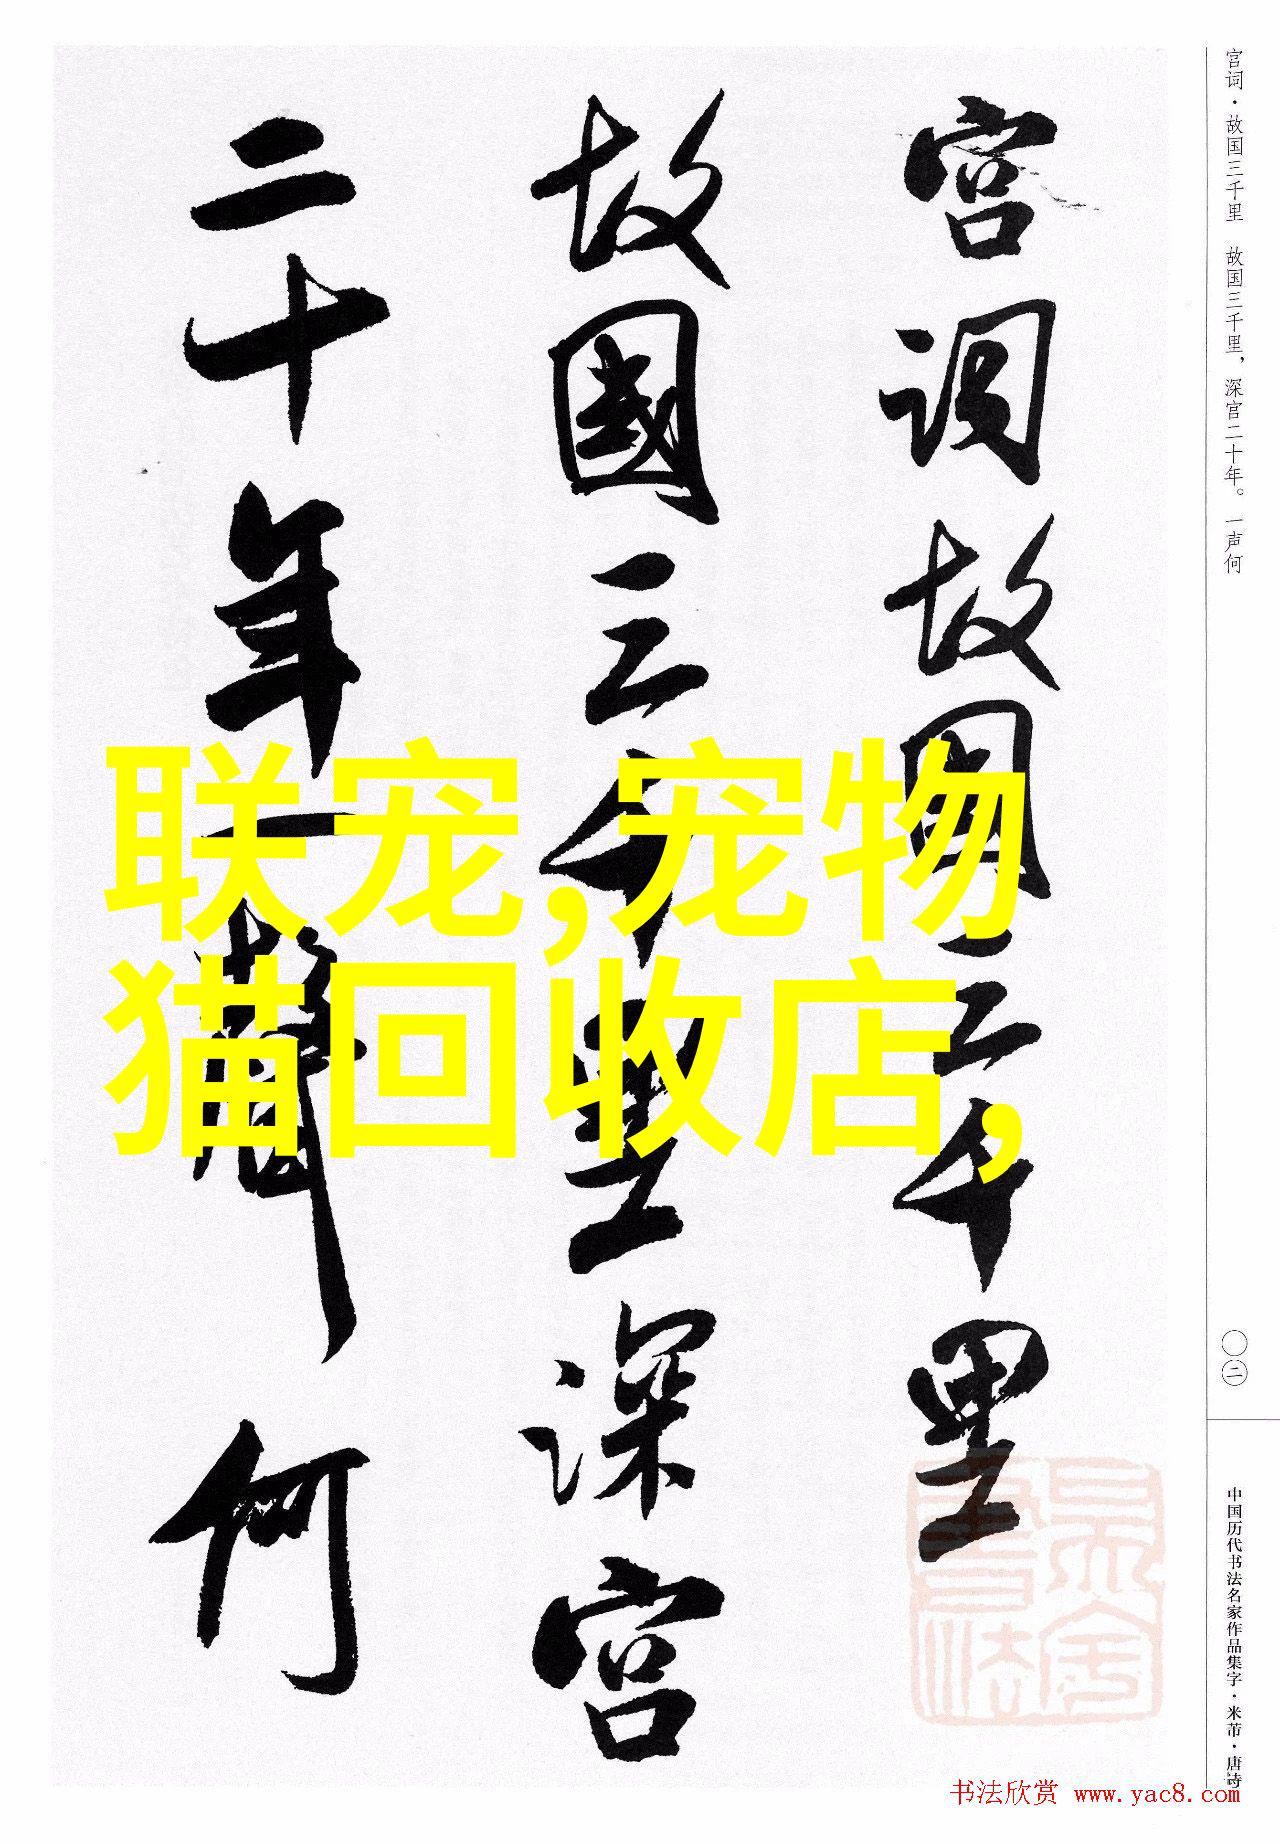 宫词·故国三千里 故国三千里，深宫二十年。一声何
宫词故国三千里
故國三千里深宫
二十年一聲何
联宠,宠物
猫回收店,
〇二
中国历代书法名家作品集字·米芾·唐诗
书法欣赏 www.yac8.com